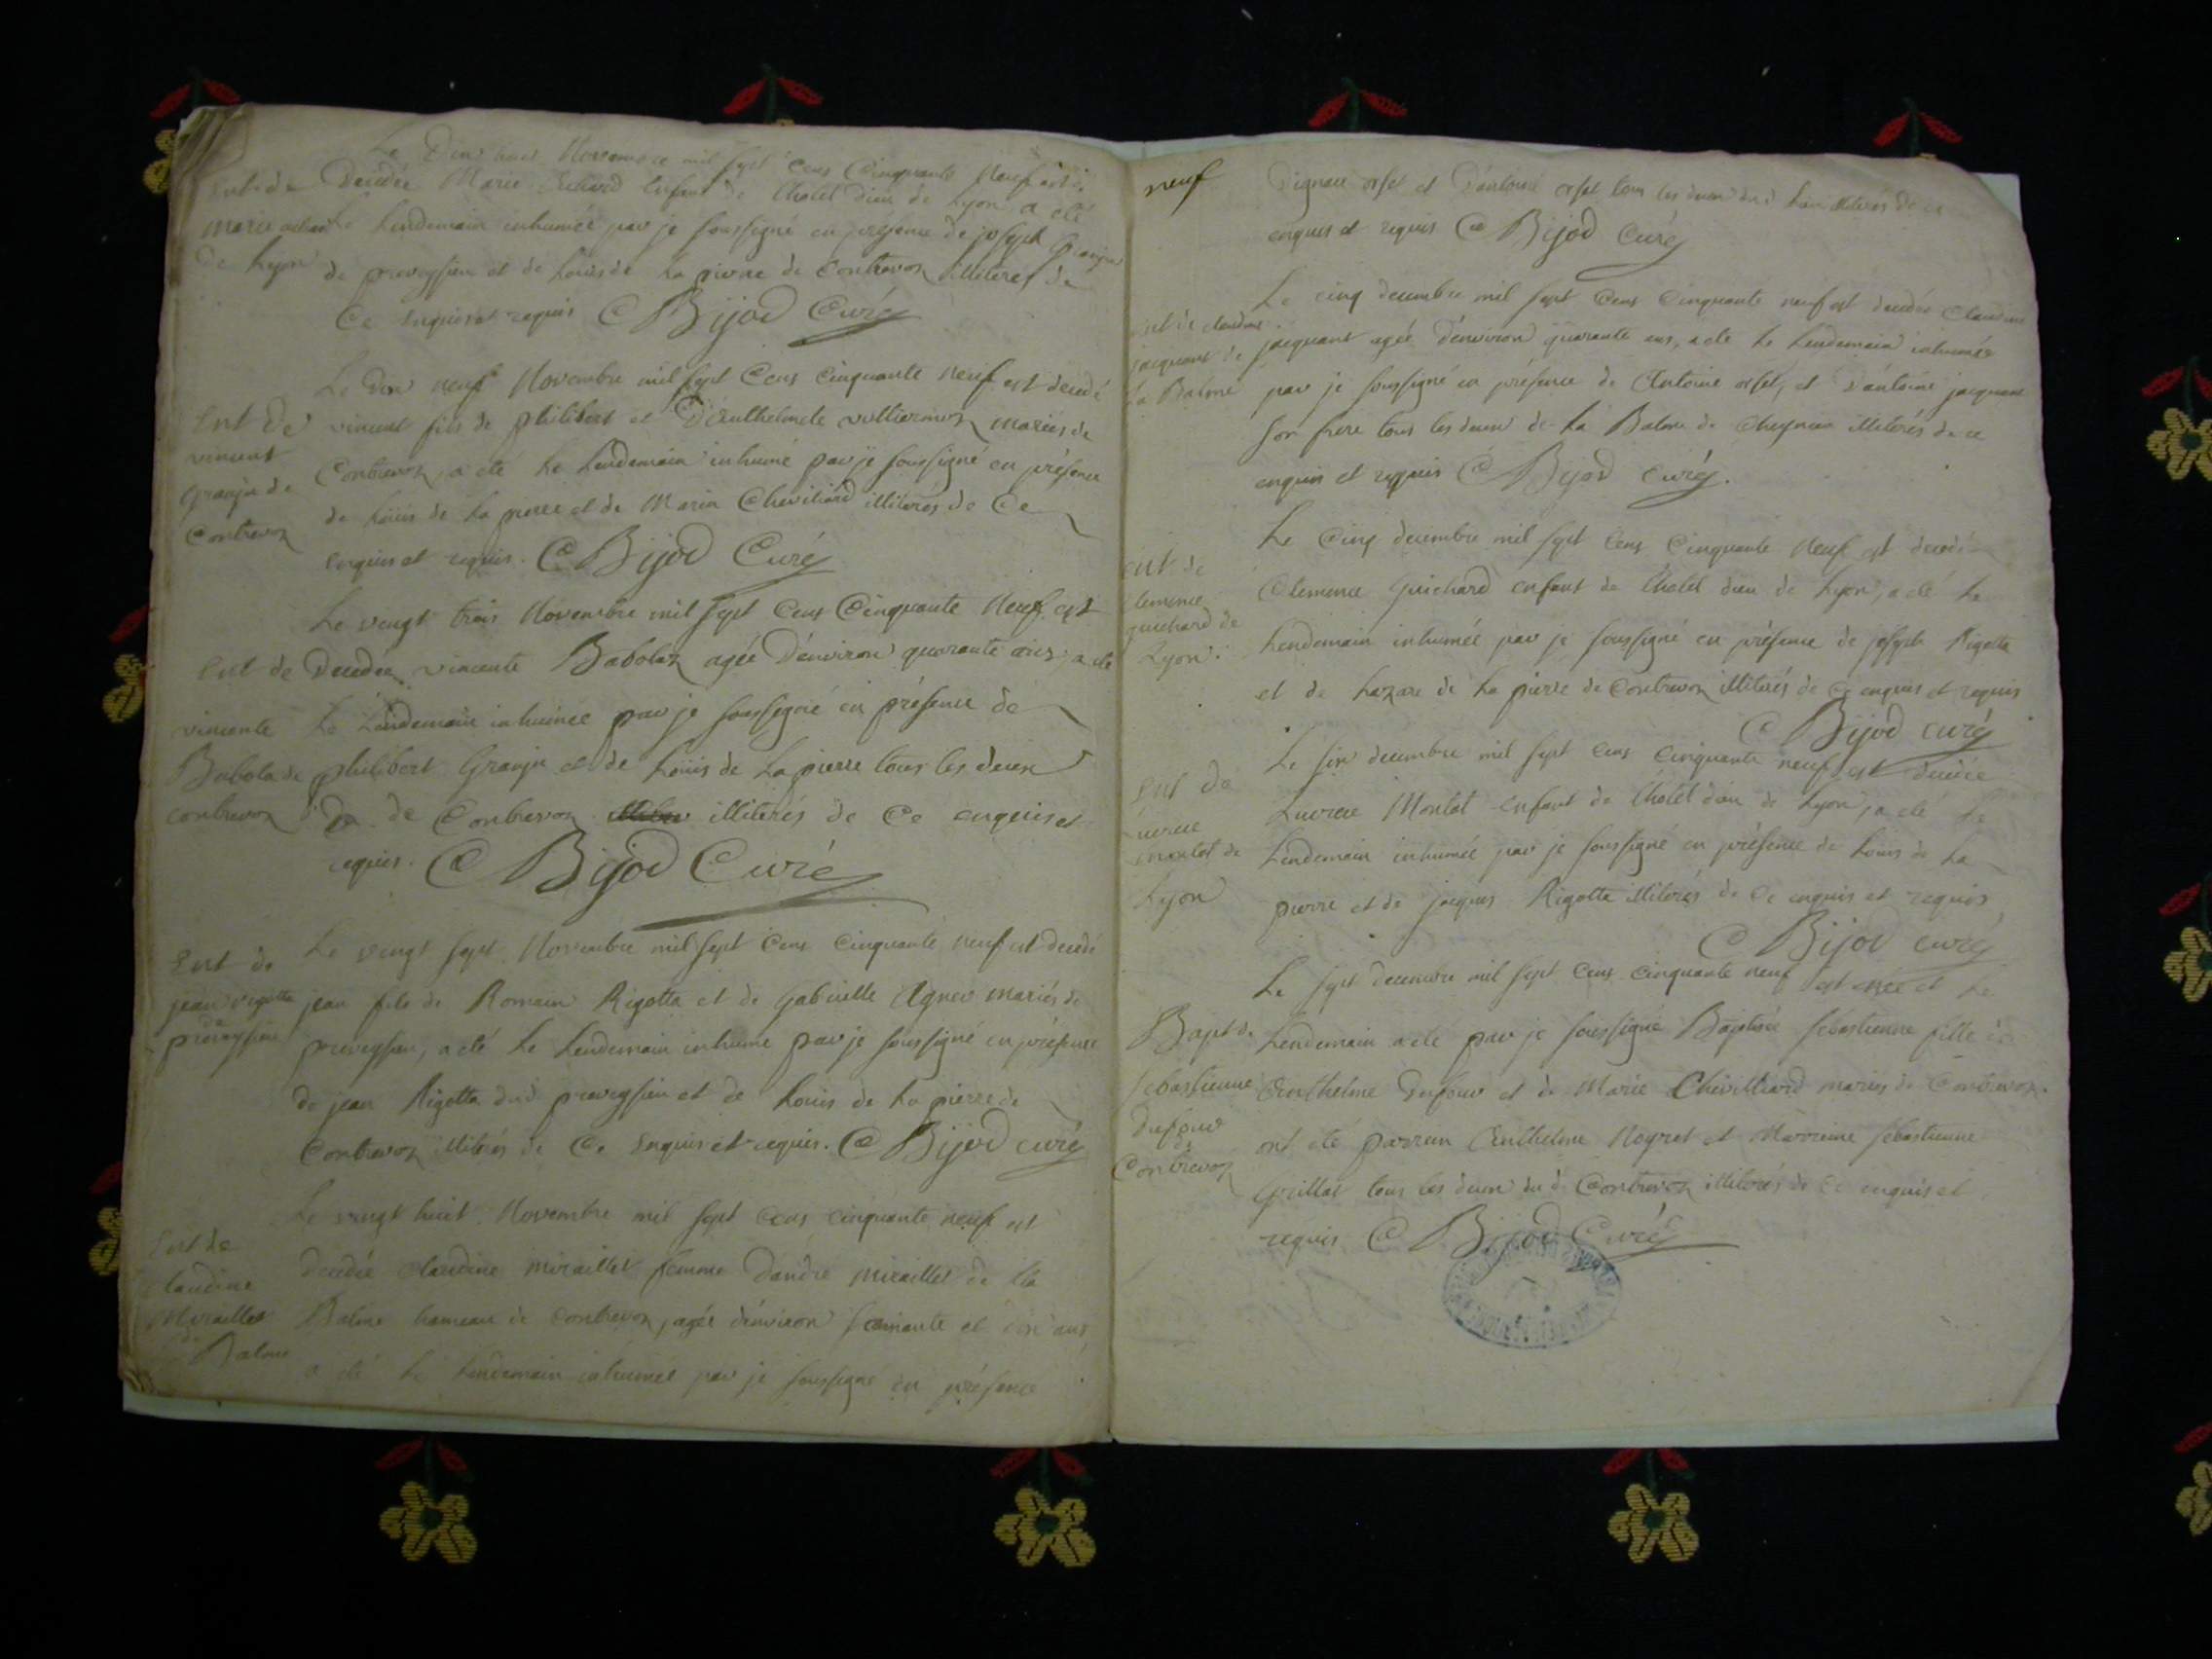 Le Dix huit Novembre mil sept Cens Cinquante Neuf est
Ent de
Decedée Marie enfant de Lhotel Dieu de Lyon a eté
Marie
Le Lendemain inhumée par je soussigné en présence de joseph Granju
de Lyon
de preveyssieu et de Loüis de La pierre de Contrevoz illiterés de
Ce Enquis et requis C Bijod Curé
Le Dix neuf Novembre mil sept Cens Cinquante neuf est decedé
Ent De
vincent fils de philibert et D'Anthelmete vulliermoz mariés de
vincent
Contrevoz, a eté Le Lendemain inhumé par je soussigné en présence
Granju de
de Loüis de La pierre et de Marin Chevilliard illiterés de Ce
Contrevoz
enquis et requis. C Bijod Curé
Le vengt trois Novembre mil sept Cens Cinquante Neuf est
Ent de
Decedée vincente Babolaz agée D'environ quarante ans, a eté
vincente
Le Lendemain inhumée par je soussigné en présence de
Babola de
philibert Granju et de Loüis de La pierre tous les deux
contrevoz
de Contrevoz illiterés de Ce enquis et
requis. C Bijod Curé
Ent de
Le vengt sept Novembre mil sept Cens Cinquante neuf est decedé
jean rigotta
jean fils de Romain Rigotta et de Gabrielle Agner mariés de
de
preveyssieu
preveyssieu, a eté Le Lendemain inhumé par je soussigné en présence
de jean Rigotta dud preveyssieu et de Louis de La pierre de
Contrevoz illiterés de Ce Enquis et requis. C Bijod curé
Le vengt huit Novembre mil sept Cens cinquante neuf est
Ent de
Claudine
decedée Claudine miraillet femme D'andré miraillet de La
Miraillet
de
Balme hameau de Contrevoz, agée d'environ soixante et dix ans
Balme
a eté Le Lendemain inhumée par je soussigné en présence
neuf
D'ignace orset et D'antoine orset tous les deux illiterés de ce
enquis et requis C Bijod Curé
Le cinq decembre mil sept Cens Cinquante neuf est decedée Claudine
Ent de claudine
jacquant de
jacquant agée D'environ quarante ans, a eté Le Lendemain inhumée
La Balme
par je soussigné en présence de Antoine orset, et D'antoine jacquant
son frere tous les deux de La Balme de Cheynieu illiterés de ce
enquis et requis C Bijod Curé.
Le Cinq decembre mil sept Cens Cinquante Neuf est decedée
Ent de
Clemence
Clemence Guichard enfant de Lhotel dieu de Lyon, a eté Le
guichard de
Lyon
Lendemain inhumée par je soussigné en présence de joseph Rigotta
et de Lazare de La pierre de Contrevoz illiterés de Ce enquis et requis
C Bijod curé
Le six decembre mil sept Cens Cinquante neuf est decedée
Ent De
Lucrece
Lucrece Montat enfant de Lhotel dieu de Lyon, a eté Le
montat de
Lendemain inhumée par je soussigné en présence de Louis de La
Lyon
pierre et de jacques Rigotta illiterés de Ce enquis et requis
C Bijod curé
Le sept decembre mil sept Cens Cinquante neuf est neé et Le
Bapt de
Lendemain a eté par je soussigné Baptisée sebastienne fille de
sebastienne
Anthelme Dufour et de Marie Chevilliard mariés de Contrevoz.
Dufour
de
ont eté parrein Anthelme Neyret et Marreine sebastienne
Contrevoz
Grillat tous les deux du d. Contrevoz illiterés de Ce enquis et
requis C Bijod Curé